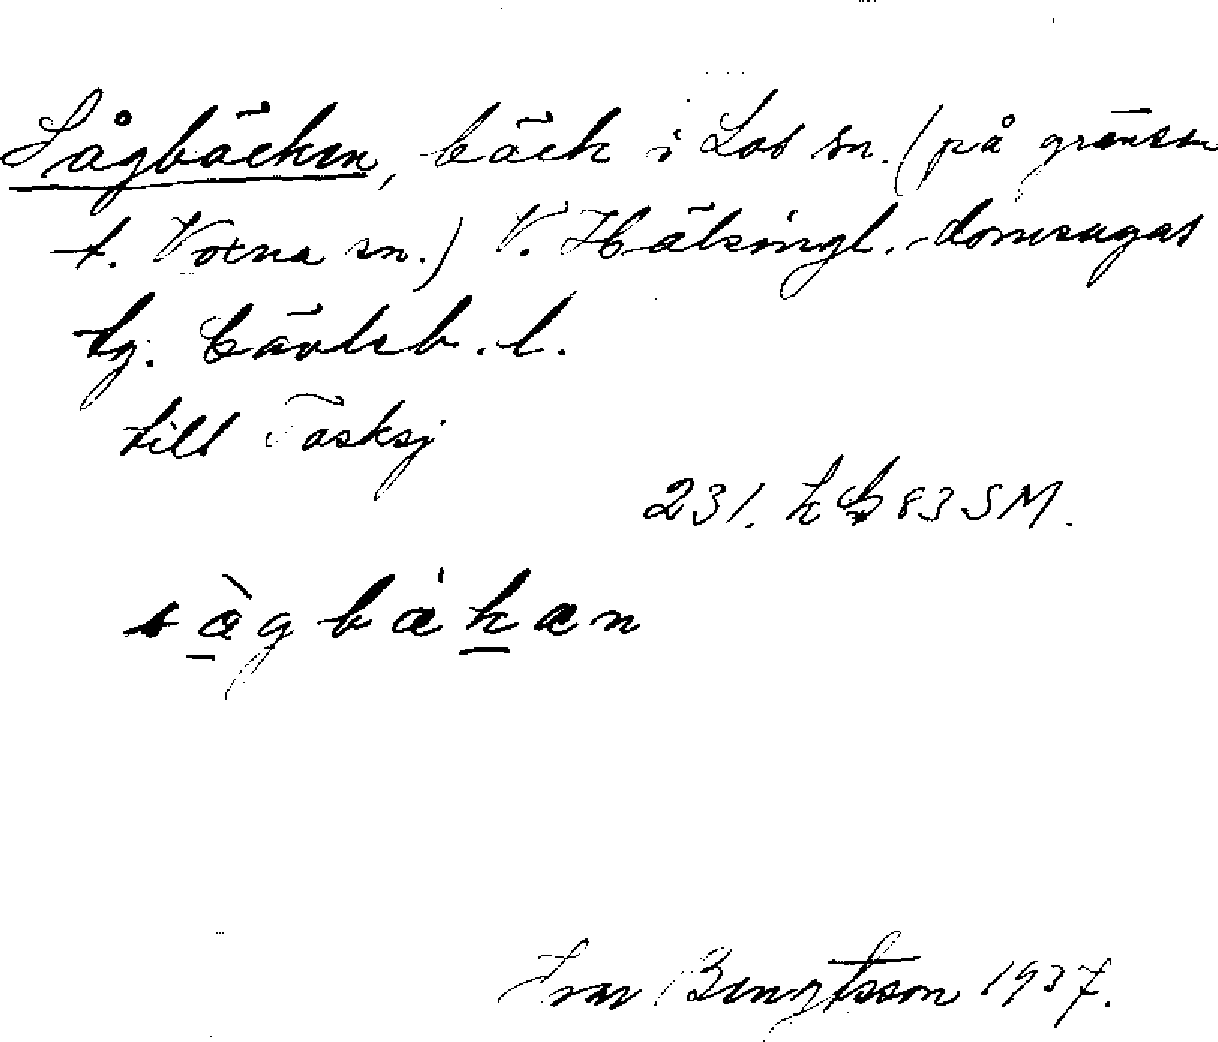 Sågbäcken, bäck i Los sn. (på gränsen
t. Voxna sn.) V. Hälsingl. domsagas
tg. Gävleb. l.
till Tåsksj
231. h 83 SM.
sågbäkæn
Ivar Bengtsson 1937.